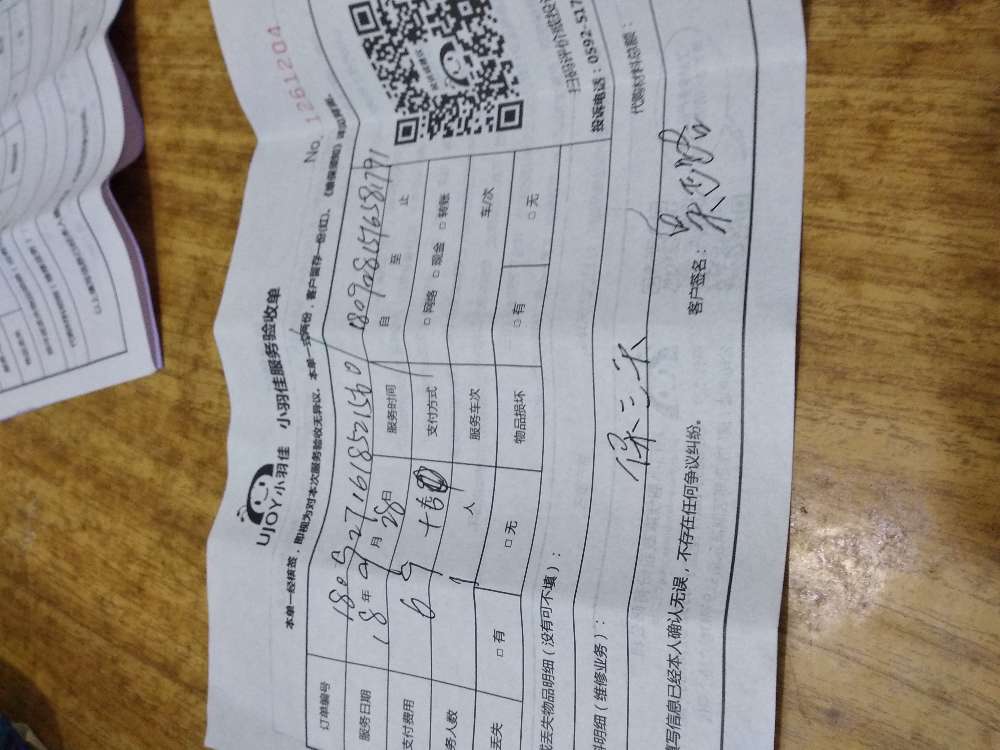 No. 1261204
UJOY小羽佳 小羽佳服务验收单
本单一经核签，即视为对本次服务验收无异议。本单一式两份，客户留存一份(红)。
订单编号 1809271618521560 1809281516581791
服务日期 18年9月28日 服务时间 自 至 止
支付费用 69+6 支付方式 □网络 □现金 □转账
务人数 1 人 服务车次 车/次
丢失 □有 □无 物品损坏 □有 □无
或丢失物品明细（没有可不填）：
料明细（维修业务）：
保三天
扫码评价或投诉
投诉电话：0592-517
代购材料总额：
填写信息已经本人确认无误，不存在任何争议纠纷。
客户签名：